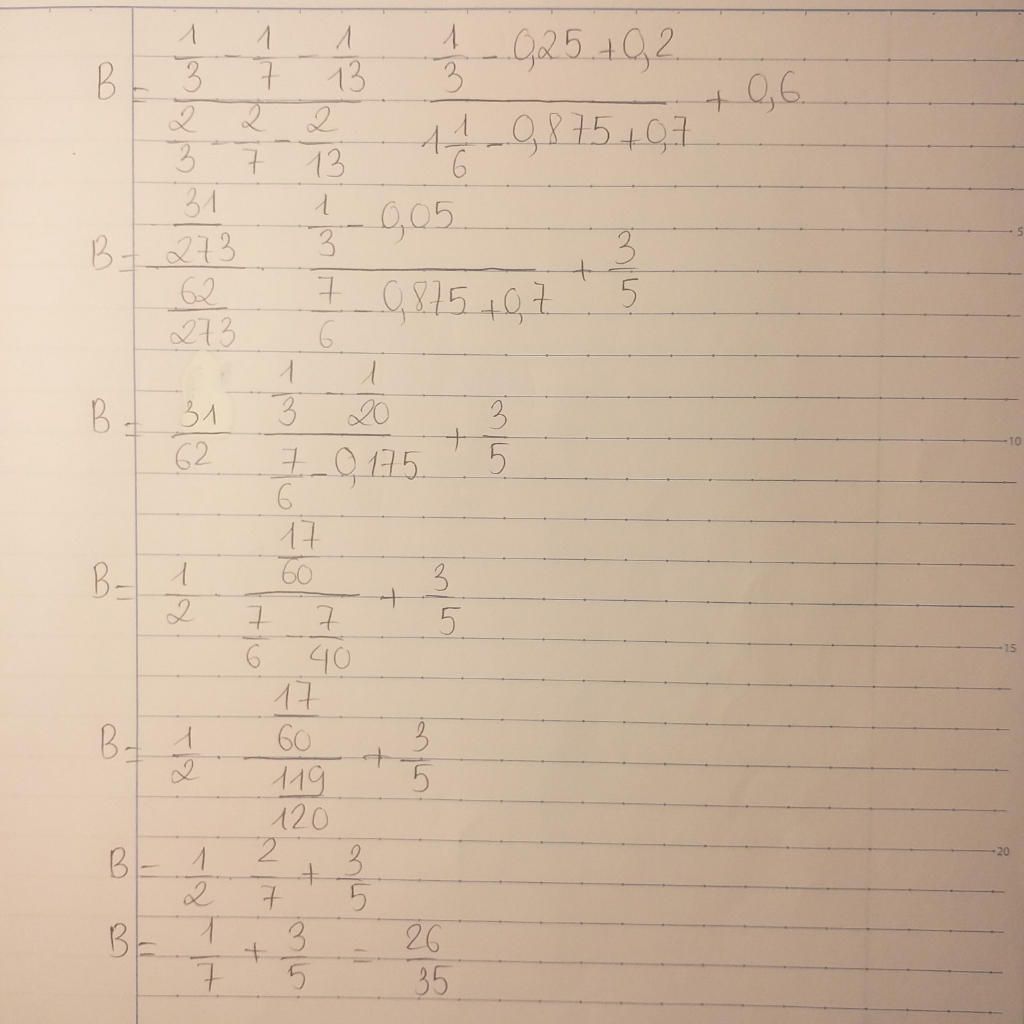 B = \frac{\frac{1}{3} - \frac{1}{7} - \frac{1}{13}}{\frac{2}{3} - \frac{2}{7} - \frac{2}{13}} \cdot \frac{\frac{1}{3} - 0,25 + 0,2}{1\frac{1}{6} - 0,875 + 0,7} + 0,6
B = \frac{\frac{31}{273}}{\frac{62}{273}} \cdot \frac{\frac{1}{3} - 0,05}{\frac{7}{6} - 0,875 + 0,7} + \frac{3}{5}
5
B = \frac{31}{62} \cdot \frac{\frac{1}{3} - \frac{1}{20}}{\frac{7}{6} - 0,175} + \frac{3}{5}
10
B = \frac{1}{2} \cdot \frac{\frac{17}{60}}{\frac{7}{6} - \frac{7}{40}} + \frac{3}{5}
15
B = \frac{1}{2} \cdot \frac{\frac{17}{60}}{\frac{119}{120}} + \frac{3}{5}
B = \frac{1}{2} \cdot \frac{2}{7} + \frac{3}{5}
20
B = \frac{1}{7} + \frac{3}{5} = \frac{26}{35}